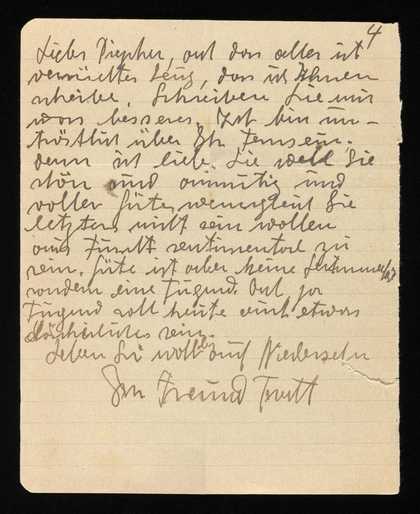 4
Liebes ach das alles ist
verrücktes Zeug, das ich Ihnen
schreibe. Schreiben Sie mir
was besseres. Ich bin un-
tröstlich über Ihr Fernsein.
denn ich liebe Sie weil Sie
schön und anmutig und
voller Güte, wenngleich Sie
letztere nicht sein wollen
aus Furcht sentimental zu
sein. Güte ist aber keine
sondern eine Tugend. Ach ja
Tugend soll heute auch etwas
lächerliches sein.
Leben Sie wohl auf Wiedersehn
Ihr Freund